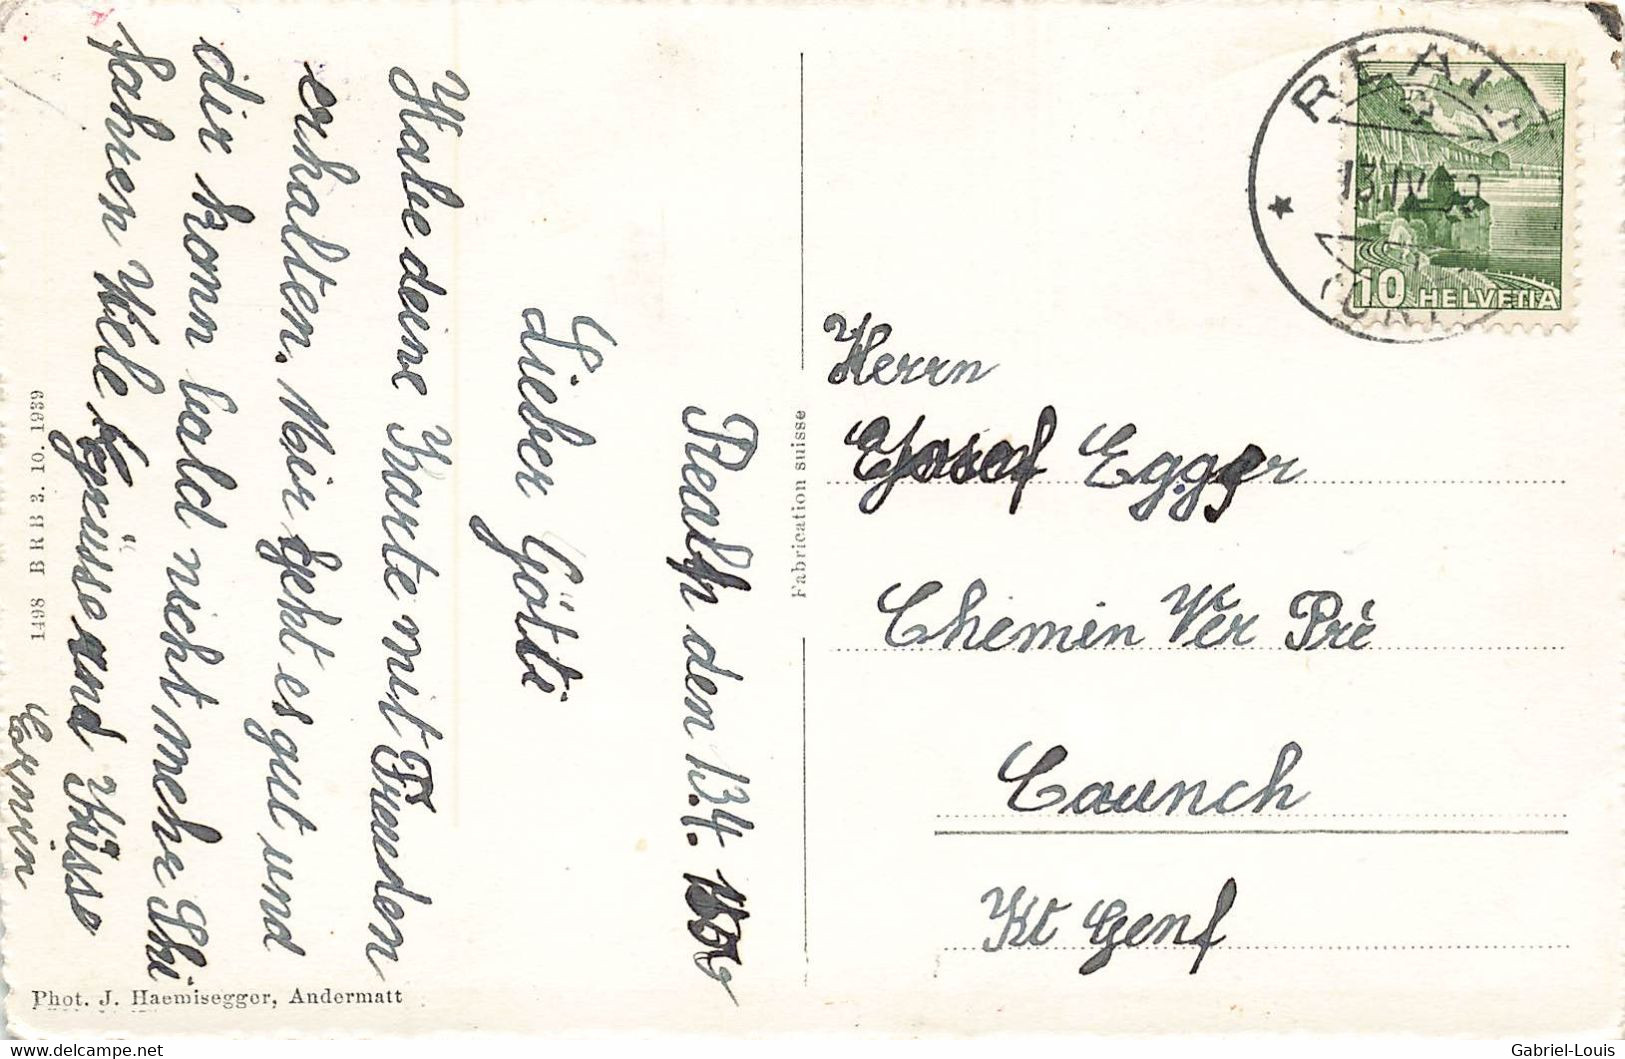 Realp den 13.4.
Lieber Götti
Habe deine Karte mit Freuden
erhalten. Mir geht es gut und
dir kann bald nicht mehr Ski
fahren Viele Grüsse und Küsse
1498 BRB 3. 10. 1939
Phot. J. Haemisegger, Andermatt
Fabrication suisse
REALP
13.IV
10 HELVETIA
Herrn
Josef Egger
Chemin Ver Pré
Counch
Kt Genf
delcampe.net
Gabriel-Louis